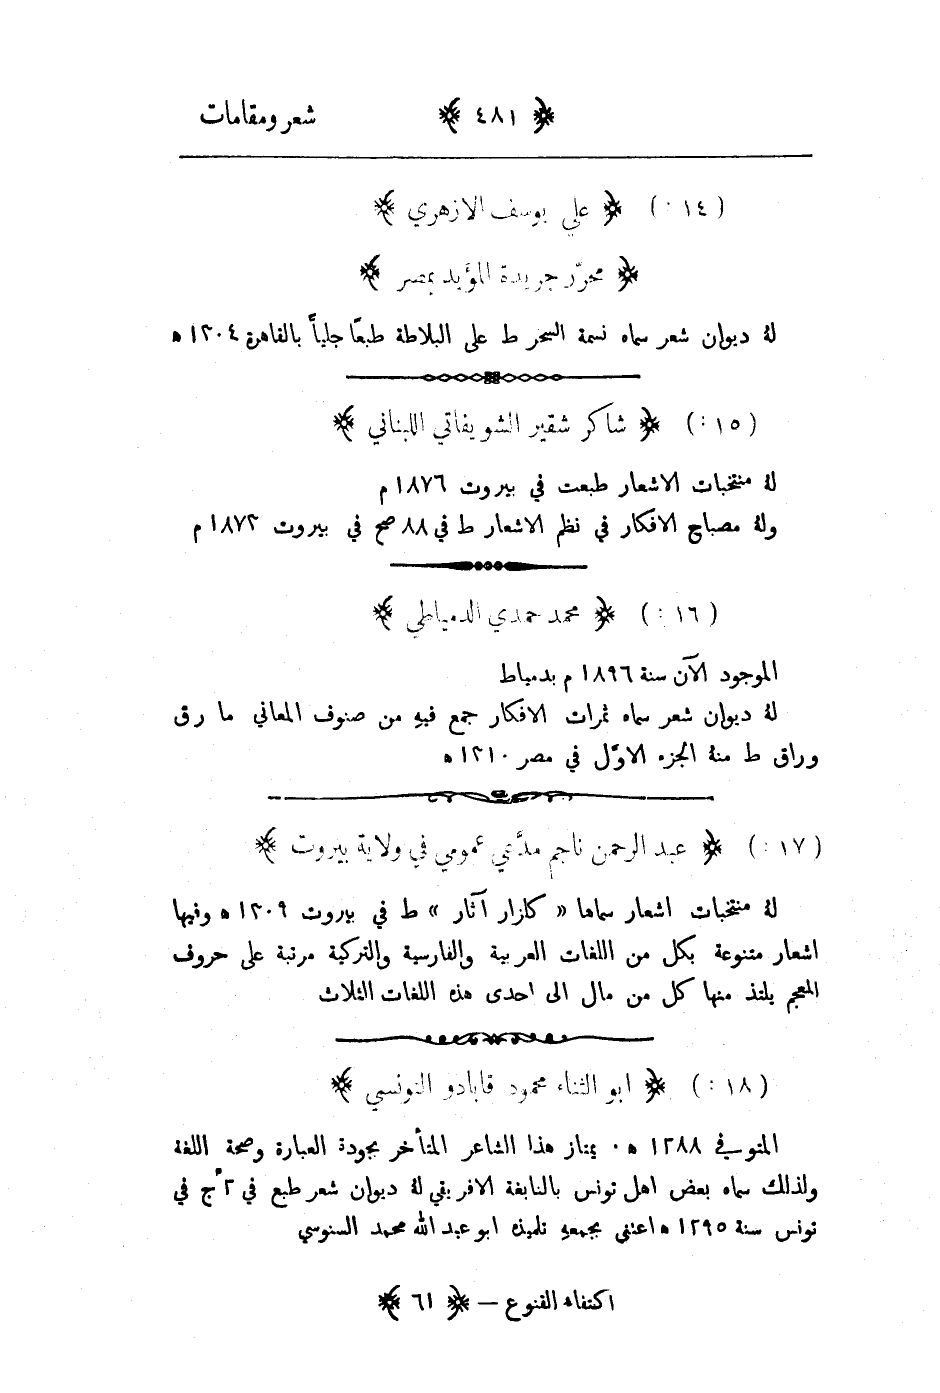 شعر ومقامات ﴿ ٤٨١ ﴾
(١٤ :) ﴿ علي يوسف الازهري ﴾
﴿ محرّر جريدة المؤَيد بمصر ﴾
لهُ ديوان شعر سماه نسمة السحر ط على البلاطة طبعًا جلياً بالقاهرة ١٣٠٤ ه
(١٥ :) ﴿ شاكر شقير الشويفاتي اللبناني ﴾
لهُ منتخبات الاشعار طبعت في بيروت ١٨٧٦ م
ولهُ مصباح الافكار في نظم الاشعار ط في ٨٨ صح في بيروت ١٨٧٣ م
(١٦ :) ﴿ محمد حمدي الدمياطي ﴾
الموجود الآن سنة ١٨٩٦ م بدمياط
لهُ ديوان شعر سماه ثمرات الافكار جمع فيهِ من صنوف المعاني ما رق
وراق ط منهُ الجزء الاوَّل في مصر ١٣١٠ ه
(١٧ :) ﴿ عبد الرحمن ناجم مدَّعي عمومي في ولاية بيروت ﴾
لهُ منتخبات اشعار سماها « كلزار آثار » ط في بيروت ١٣٠٩ ه وفيها
اشعار متنوعة بكل من اللغات العربية والفارسية والتركية مرتبة على حروف
المعجم يلتذ منها كل من مال الى احدى هذه اللغات الثلاث
(١٨ :) ﴿ ابو الثناء محمود قابادو التونسي ﴾
المتوفي ١٢٨٨ ه ٠ يمتاز هذا الشاعر المتأخر بجودة العبارة وصحة اللغة
ولذلك سماه بعض اهل تونس بالنابغة الافريقي لهُ ديوان شعر طبع في ٢ ج في
تونس سنة ١٢٩٥ ه اعتنى بجمعهِ تلميذه ابو عبد الله محمد السنوسي
اكتفاء القنوع — ﴿ ٦١ ﴾